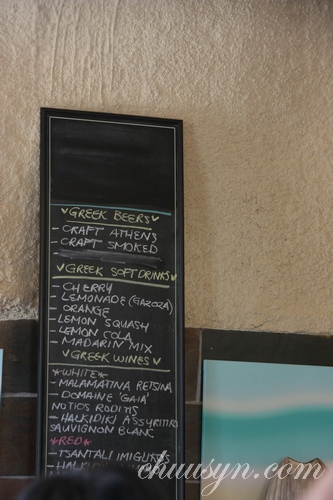 GREEK BEERS
- CRAFT ATHENS
- CRAFT SMOKED
GREEK SOFT DRINKS
- CHERRY
- LEMONADE (GAZOZA)
- ORANGE
- LEMON SQUASH
- LEMON COLA
- MADARIN MIX
GREEK WINES
*WHITE*
- MALAMATINA RETSINA
- DOMAINE 'GAIA'
NOTIOS RODITIS
- HALKIDIKI ASSYRITIKO
SAUVIGNON BLANC
*RED*
- TSANTALI IMIGLYKOS
- HALKIDIKI
chuusyn.com